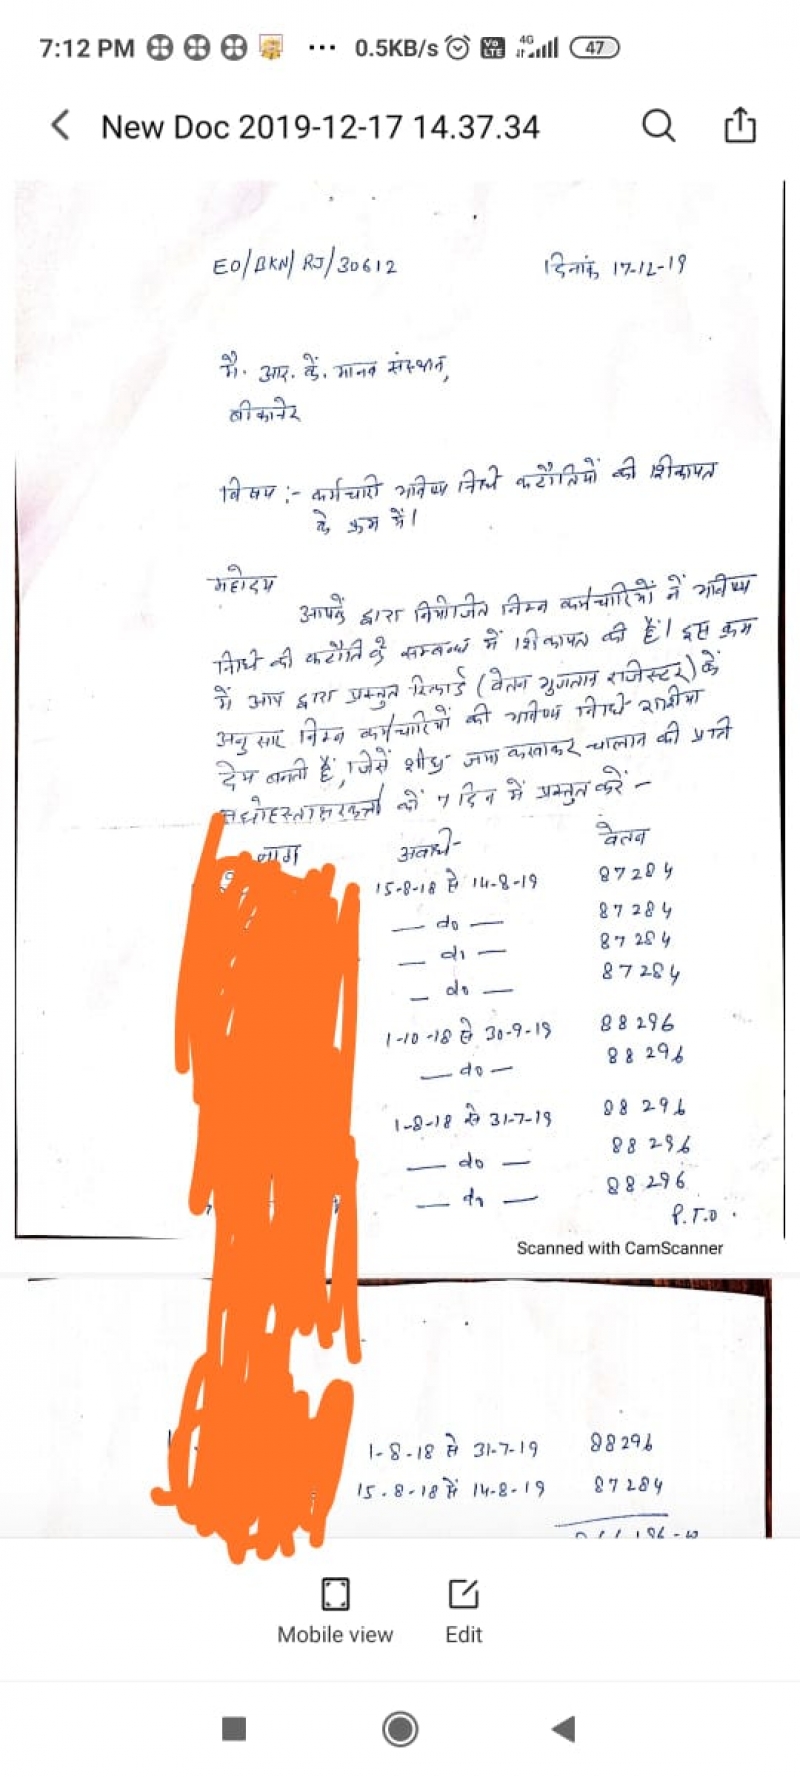 7:12 PM ... 0.5KB/s Vo LTE 4G 47
New Doc 2019-12-17 14.37.34
EO/BKN/RJ/30612 दिनांक 17-12-19
मै. आर. के. मानव संस्थान,
बीकानेर
विषय :- कर्मचारी भविष्य निधि कटौतियों की शिकायत
के क्रम में।
महोदय
आपके द्वारा नियोजित निम्न कर्मचारियों नें भविष्य
निधि की कटौति के सम्बन्ध में शिकायत की हैं। इस क्रम
में आप द्वारा प्रस्तुत रिकार्ड (वेतन भुगतान रजिस्टर) के
अनुसार निम्न कर्मचारियों की भविष्य निधि राशीया
देय बनती हैं, जिसें शीघ्र जमा करवाकर चालान की प्रति
अधोहस्ताक्षरकर्ता को 7 दिन में प्रस्तुत करें -
नाम अवधि- वेतन
15-8-18 से 14-8-19 87284
— do — 87284
— do — 87284
— do — 87284
1-10-18 से 30-9-19 88296
— do — 88296
1-8-18 से 31-7-19 88296
— do — 88296
— do — 88296
P.T.O.
Scanned with CamScanner
1-8-18 से 31-7-19 88296
15.8-18 सें 14-8-19 87284
Mobile view Edit